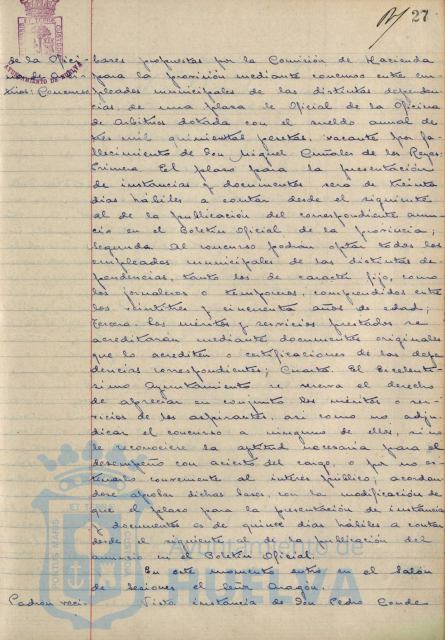 27
de la Ofici- bases propuestas por la Comisión de Hacienda
para la provisión mediante concurso entre em-
trios: Concurso pleados municipales de las distintas dependen-
cias, de una plaza de Oficial de la Oficina
de Arbitrios dotada con el sueldo anual de
tres mil quinientas pesetas, vacante por fa-
llecimiento de Don Miguel de los Reyes:
Primera. El plazo para la presentación
de instancias y documentos será de treinta
dias hábiles a contar desde el siguiente
al de la publicación del correspondiente anun-
cio en el Boletín Oficial de la provincia;
Segunda. Al concurso podrán optar todos los
empleados municipales de las distintas de-
pendencias, tanto los de caracter fijo, como
los jornaleros o temporeros, comprendidos entre
los veintitres y cincuenta años de edad;
Tercera. Los méritos y servicios prestados se
acreditarán mediante documentos originales
que lo acrediten o certificaciones de las depen-
dencias correspondientes; Cuarta. El Excelentí-
simo Ayuntamiento se reserva el derecho
de apreciar en conjunto los méritos o ser-
vicios de los aspirantes, asi como no adju-
dicar el concurso a ninguno de ellos, si no
le reconociere la aptitud necesaria para el
desempeño con acierto del cargo, o por no es-
timarlo conveniente al interés público; acordan-
dose aprobar dichas bases, con la modificación de
que el plazo para la presentación de instancias
y documentos es de quince dias hábiles a contar
desde el siguiente al de la publicación del
anuncio en el Boletín Oficial.
En este momento entra en el Salón
de Sesiones el Señor Aragón.
Padron veci- Vista instancia de Don Pedro Conde
Ayuntamiento de
HUELVA